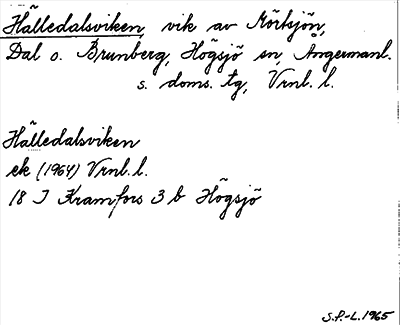 Hälledalsviken, vik av Mörtsjön,
Dal o. Brunberg, Högsjö sn, Ångermanl.
s. doms. tg, Vrnl. l.
Hälledalsviken
ek (1964) Vrnl. l.
18 I Kramfors 3 b Högsjö
S.P.-L. 1965